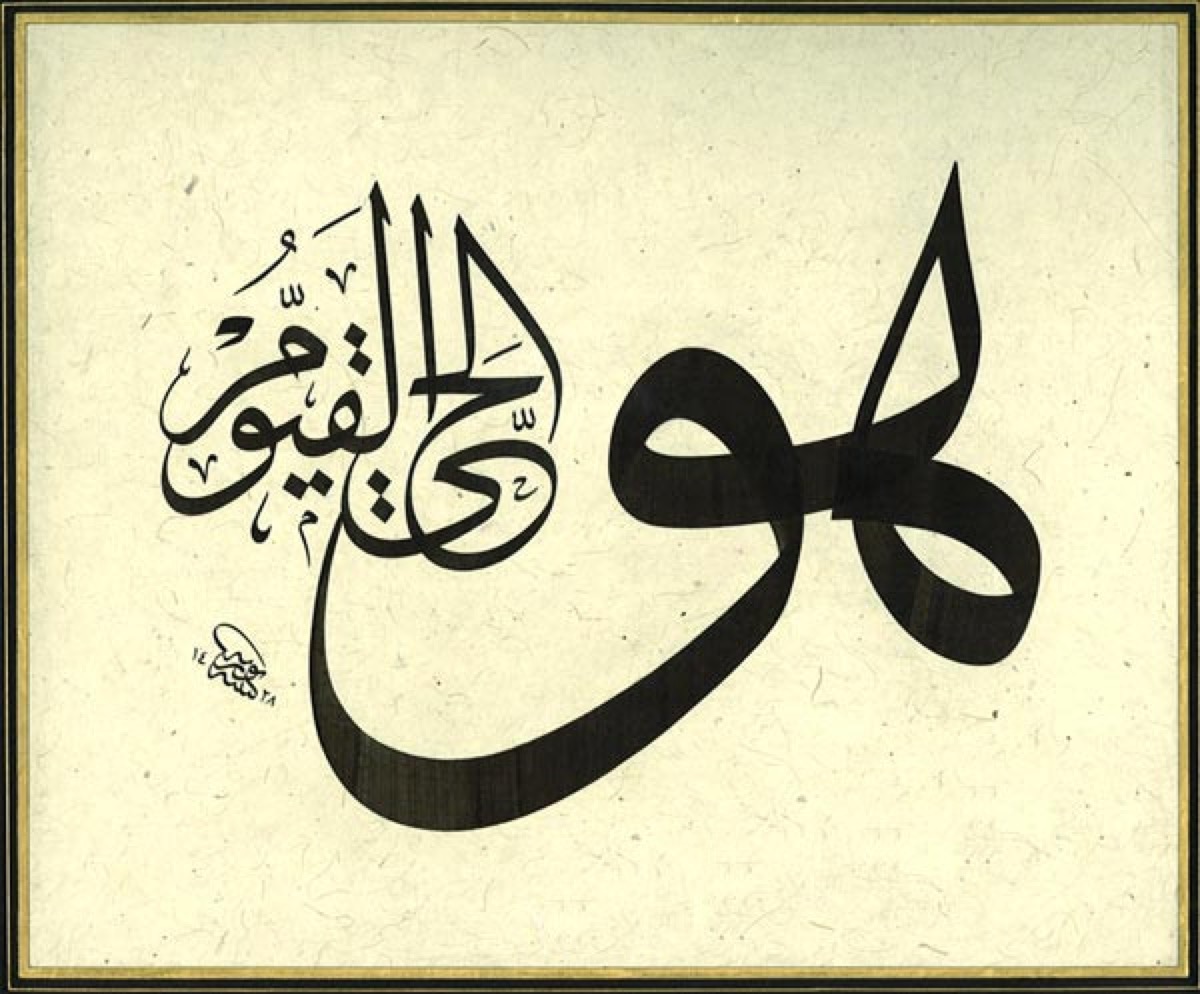 هو الحَيُّ القَيُّومُ
١٤٢٨